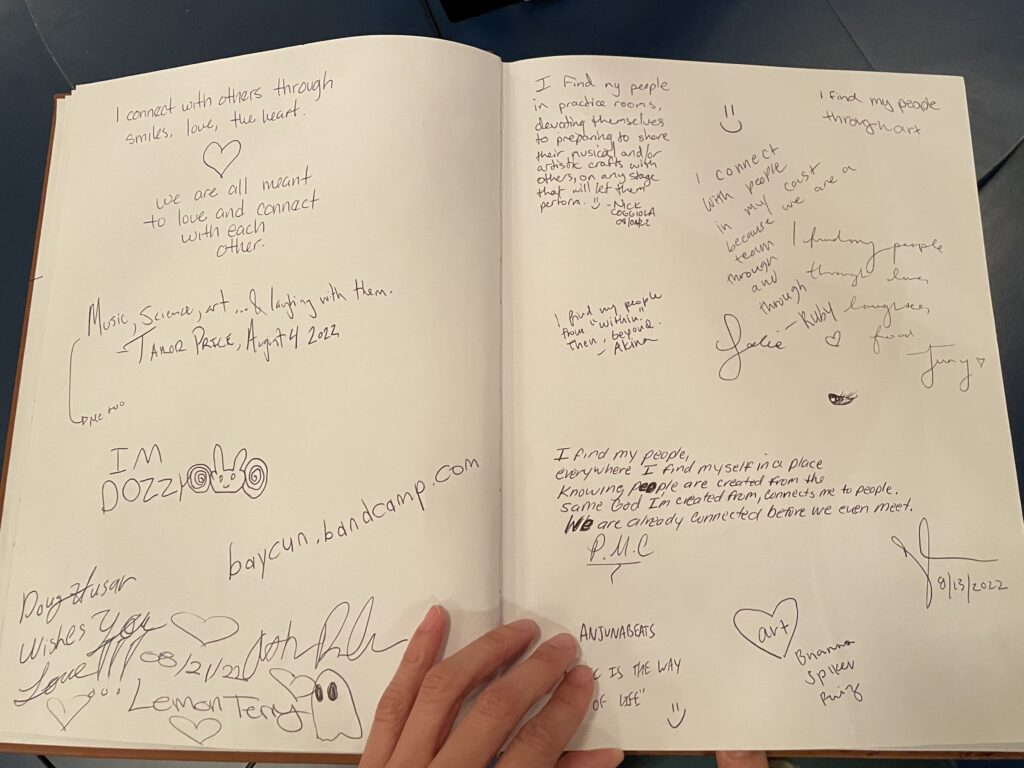 I connect with others through
smiles, love, the heart.
we are all meant
to love and connect
with each
other.
Music, Science, art ... & laughing with them.
PRICE, August 4 2022
me too
IM
DOZZY
baycun.bandcamp.com
Doug Husar
Wishes You
Love!!!
08/21/22
Lemon Terry
I find my people
in practice rooms,
devoting themselves
to preparing to share
their musical and/or
artistic crafts with
others, on any stage
that will let them
perform.
- NICK
COGGIOLA
I find my people
through art
I connect
with people
in my cast
because we are a
team
through
and
through
- Ruby
I find my people
through love,
laughter,
food
I find my people
from "within."
Then, beyond.
- Akina
I find my people,
everywhere I find myself in a place
knowing, people are created from the
same God I'm created from, connects me to people.
WE are already connected before we even meet.
P.M.C
8/13/2022
art
Brianna
Spiker
Ruiz
ANJUNABEATS
IS THE WAY
OF LIFE"